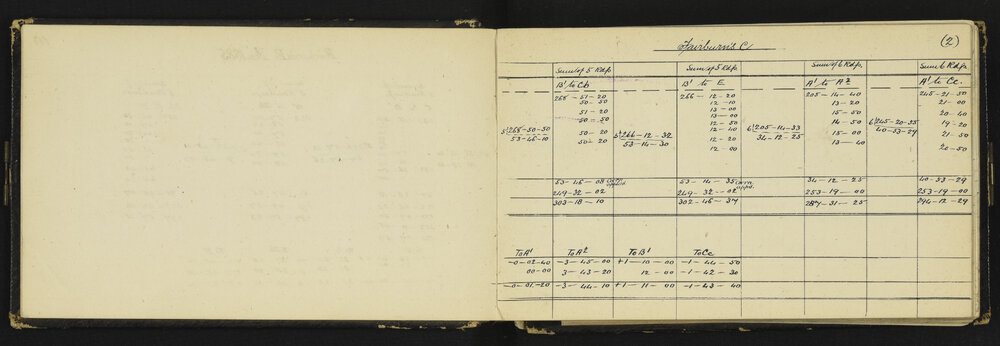 (2)
Fairburn's C
Sum of 5 Rdgs. Sum of 5 Rdgs. Sum of 6 Rdgs. Sum 6 Rdgs.
B' to Cb B' to E A' to A² A' to Cc.
268-51-20 266-12-20 205-14-40 245-21-50
50-50 12-10 13-20 21-00
51-20 13-00 15-50 20-40
50-50 12-50 14-50 19-20
50-20 12-40 15-00 21-50
50-20 12-20 13-40 20-50
12-00
5)268-50-50 5)266-12-32 6)205-14-33 6)245-20-55
53-46-10 53-14-30 34-12-25 40-53-29
53-46-08 corrn applied 53-14-35 corrn appd. 34-12-25 40-53-29
249-32-02 249-32-02 253-19-00 253-19-00
303-18-10 302-46-37 287-31-25 294-12-29
To A' To A² To B' To Cc
-0-02-40 -3-45-00 +1-10-00 -1-44-50
00-00 3-43-20 12-00 -1-42-30
-0-01-20 -3-44-10 +1-11-00 -1-43-40